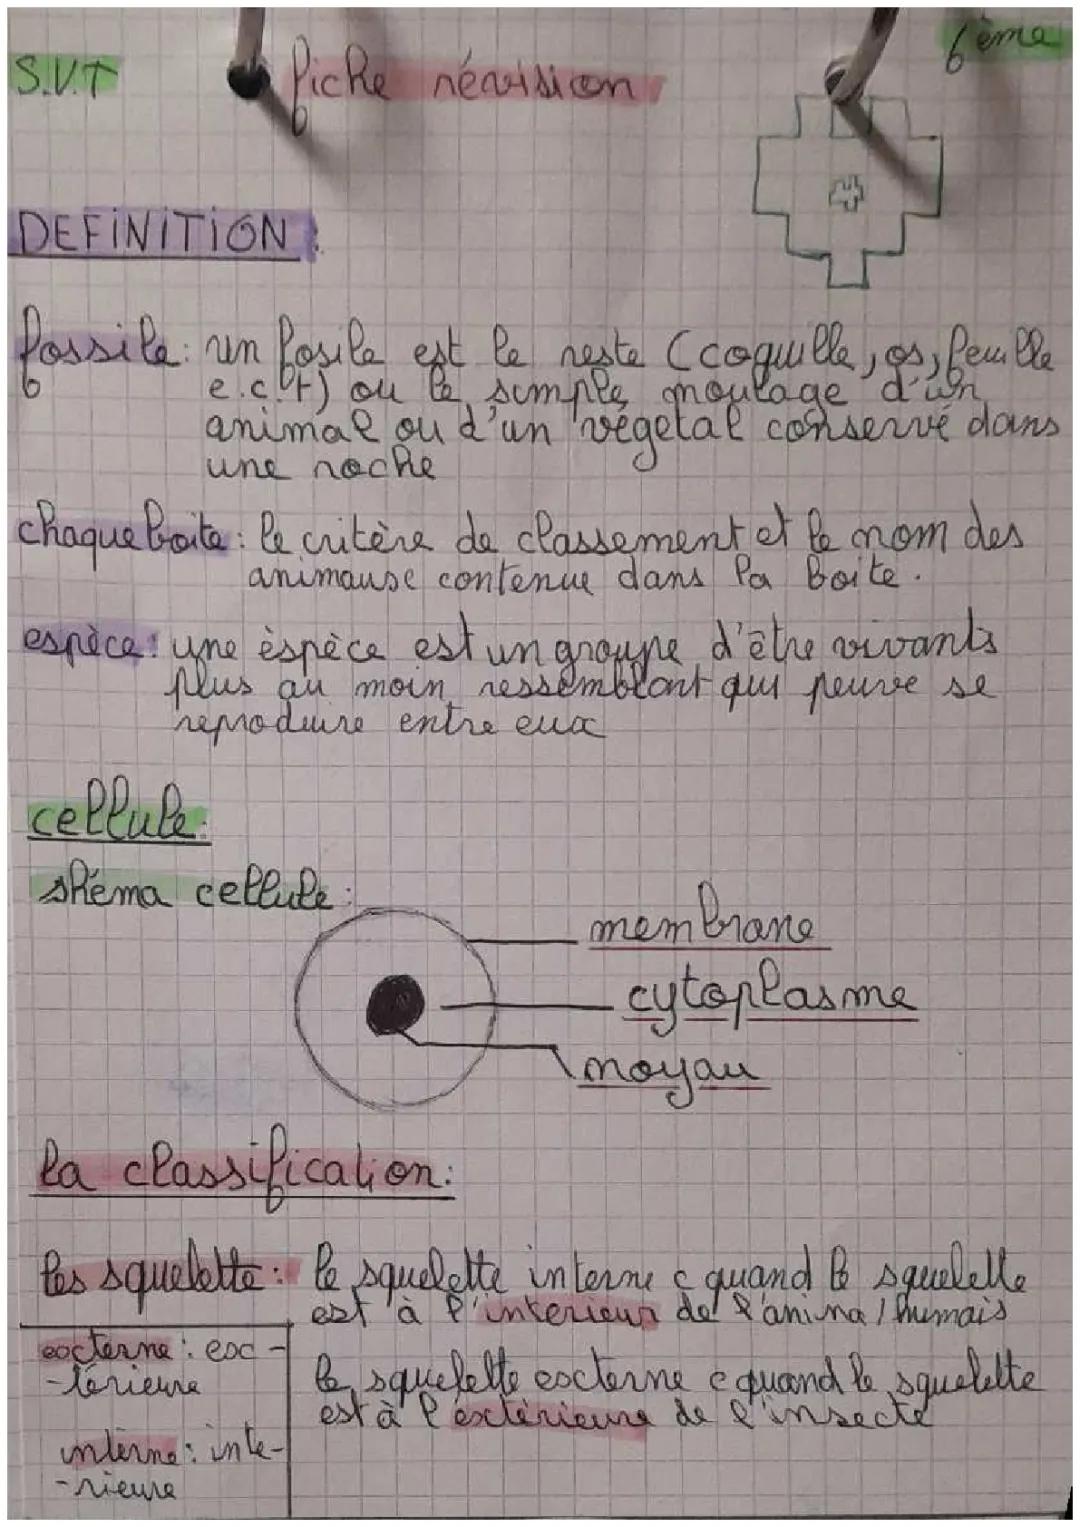 S.V.T
fiche révision
6ème
DEFINITION :
fossile : un fosile est le reste (coquille, os, feuille
e.c.t) ou le simple moulage d'un
animal ou d'un végetal conservé dans
une roche
chaque boite : le critère de classement et le nom des
animause contenue dans la boite.
espèce : une èspèce est un groupe d'être vivants
plus au moin ressemblant qui peuve se
reproduire entre eux
cellule :
shéma cellule :
membrane
cytoplasme
noyau
la classification :
les squelette : le squelette interne c quand le squelette
est à l'interieur de l'anima / humais
externe : ex-
-térieure
le squelette externe c quand le squelette
est à l'extérieure de l'insecte
interne : inte-
-rieure